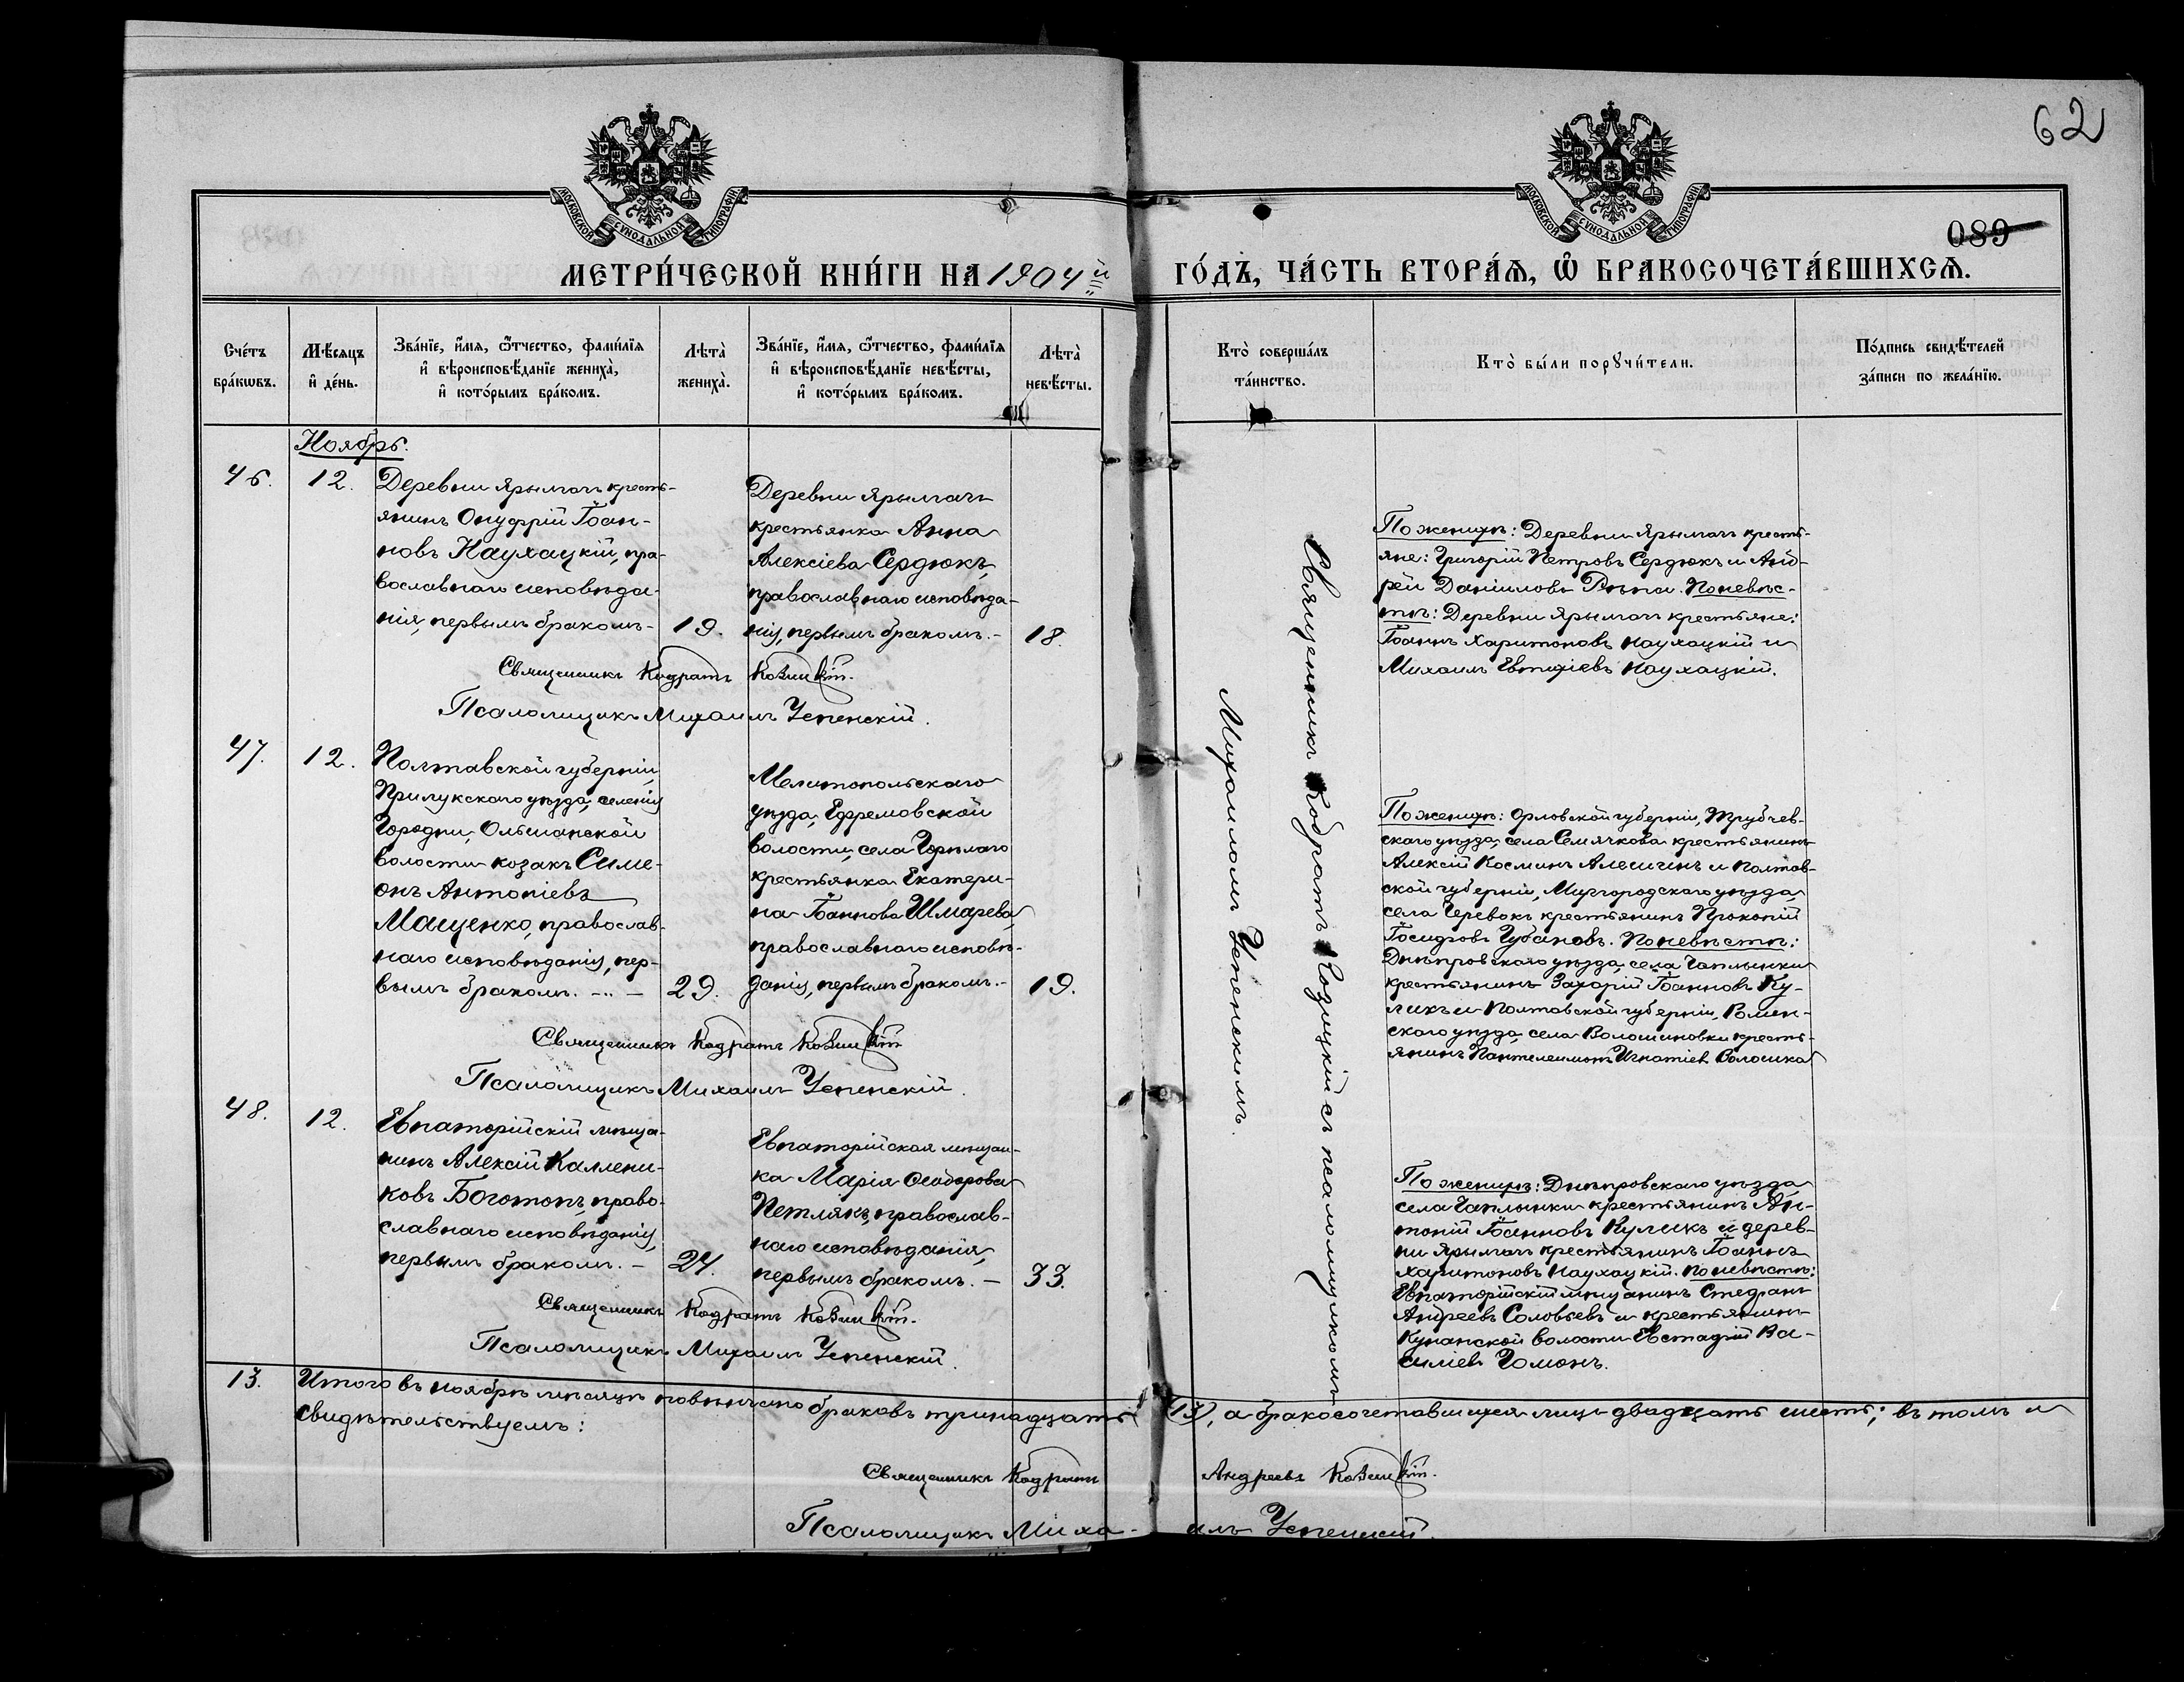 62
МОСКОВСКОЙ СѴНОДАЛЬНОЙ ТИПОГРАФІИ
МОСКОВСКОЙ СѴНОДАЛЬНОЙ ТИПОГРАФІИ
089
МЕТРИ́ЧЕСКОЙ КНИ́ГИ НА 1904й
ГО́ДЪ, ЧА́СТЬ ВТОРА́Ѧ, Ѽ БРАКОСОЧЕТА́ВШИХСѦ.
Сче́тъ
бра́кѡвъ.
Мѣ́сяцъ
и҆ де́нь.
Зва́нїе, и҆́мѧ, ѻ҆́тчество, фами́лїѧ
и҆ вѣроисповѣ́данїе жениха̀,
и҆ кото́рымъ бра́комъ.
Лѣта̀
жениха̀.
Зва́нїе, и҆́мѧ, ѻ҆́тчество, фами́лїѧ
и҆ вѣроисповѣ́данїе невѣ́сты,
и҆ кото́рымъ бра́комъ.
Лѣта̀
невѣ́сты.
Кто̀ соверша́лъ
та́инство.
Кто̀ бы́ли порꙋчи́тели.
По́дпись свидѣ́телей
за́писи по жела́нїю.
Ноябрь.
46.
12.
Деревни Ярылгачъ кресть-
янинъ Онуфрій Іоан-
новъ Наухацкій, пра-
вославнаго исповѣда-
нія, первымъ бракомъ-
19.
Деревни Ярылгачъ
крестьянка Анна
Алексіева Сердюкъ,
православнаго исповѣда-
нія, первымъ бракомъ.-
18.
Священникъ Кодратъ Козицкій.
Псаломщикъ Михаилъ Успенскій.
По женихѣ: Деревни Ярылгачъ кресть-
яне: Григорій Петровъ Сердюкъ и Анд-
рей Даніиловъ Рѣпа. По невѣс-
тѣ: Деревни Ярылгачъ крестьяне:
Іоаннъ Харитоновъ Наухацкій и
Михаилъ Евтихіевъ Наухацкій.
47.
12.
Полтавской губерніи,
Прилукскаго уѣзда, селенія
Городни, Ольшанской
волости козакъ Симе-
онъ Антоніевъ
Мащенко, православ-
наго исповѣданія, пер-
вымъ бракомъ. -..-
29.
Мелитопольскаго
уѣзда, Ефремовской
волости, села Горѣлаго
крестьянка Екатери-
на Іоаннова Шмарева,
православнаго исповѣ-
данія, первымъ бракомъ.-
19.
Священникъ Кодратъ Козицкій
Псаломщикъ Михаилъ Успенскій.
По женихѣ: Орловской губерніи, Трубчев-
скаго уѣзда, села Семячкова крестьянинъ
Алексій Космин Алешинъ и Полтав-
ской губерніи, Миргородскаго уѣзда,
села Черевокъ крестьянинъ Прокопій
Іосифовъ Губановъ. По невѣстѣ:
Днѣпровскаго уѣзда, села Чаплынки
крестьянинъ Захарій Іоанновъ Ку-
ликъ и Полтавской губерніи, Ромен-
скаго уѣзда, села Волошиновки кресть-
янинъ Пантелеимонъ Игнатіев Волошка
48.
12.
Евпаторійскій мѣща-
нинъ Алексій Каллени-
ковъ Боготопъ, право-
славнаго исповѣданія,
первымъ бракомъ. -
24.
Евпаторійская мѣщан-
ка Марія Ѳеодорова
Петлякъ, православ-
наго исповѣданія,
первымъ бракомъ. -
33.
Священникъ Кодратъ Козицкій.
Псаломщикъ Михаилъ Успенскій.
По женихѣ: Днѣпровскаго уѣзда,
села Чаплынки крестьянинъ Ан-
тоній Іоанновъ Куликъ и дерев-
ни Ярылгачъ крестьянинъ Іоаннъ
Харитоновъ Наухацкій. По невѣстѣ:
Евпаторійскій мѣщанинъ Стефанъ
Андреевъ Соловьевъ и крестьянинъ
волости Евстафій Ва-
силіевъ Гомонъ.
Священникъ Кодратъ Козицкій съ псаломщикомъ
Михаиломъ Успенскимъ.
13.
Итого въ ноябрѣ мѣсяцѣ повѣнчано браковъ тринадцать (13), а бракосочетавшихся лицъ двадцать шесть; въ томъ и
свидѣтельствуемъ:
Священникъ Кодратъ Андреевъ Козицкій.
Псаломщикъ Миха- илъ Успенскій.